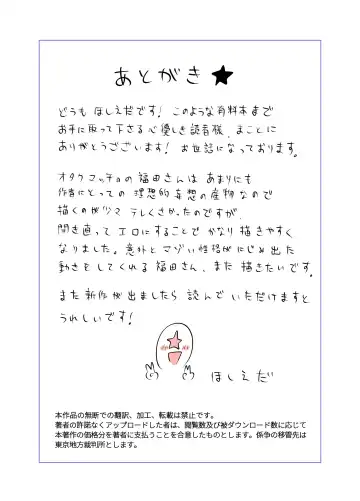 あとがき★
どうも ほしえだです! このような有料本まで
お手に取って下さる心優しき読者様、まことに
ありがとうございます! お世話になっております。
オタクマッチョの福田さんは あまりにも
作者にとっての 理想的妄想の産物なので
描くのが少々 テレくさかったのですが、
開き直って エロにすることで かなり描きやすく
なりました。意外と マゾい性格がにじみ出た
動きをしてくれる福田さん、また 描きたいです。
また新作が出ましたら 読んで いただけますと
うれしいです!
ほしえだ
本作品の無断での翻訳、加工、転載は禁止です。
著者の許諾なくアップロードした者は、閲覧数及び被ダウンロード数に応じて
本著作の価格分を著者に支払うことを合意したものとします。係争の移管先は
東京地方裁判所とします。